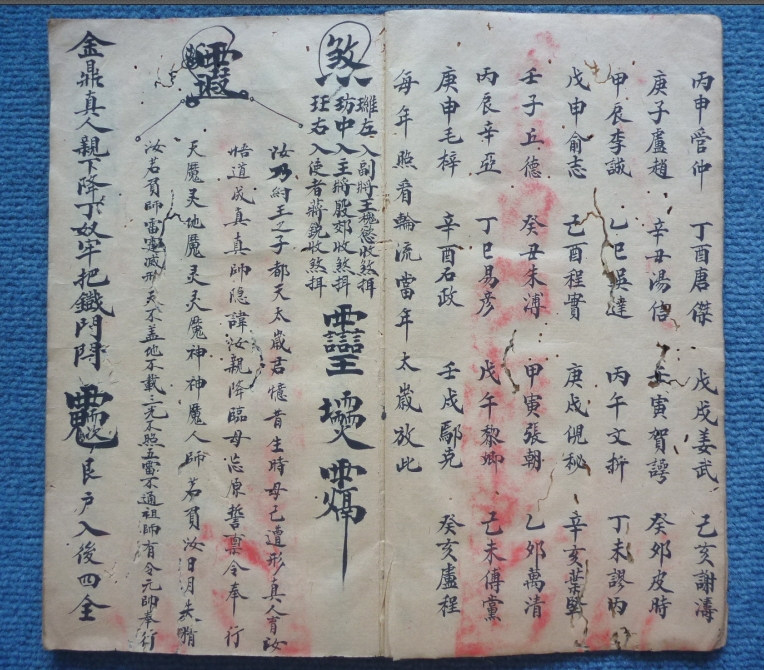 丙申管仲 丁酉唐傑 戊戌姜武 己亥謝濤
庚子盧趙 辛丑湯信 壬寅賀諤 癸卯皮時
甲辰李誠 乙巳吳達 丙午文折 丁未謬丙
戊申俞志 己酉程實 庚戌倪秘 辛亥葉堅
壬子丘德 癸丑朱溥 甲寅張朝 乙卯萬清
丙辰辛亞 丁巳易彥 戊午黎卿 己未傅黨
庚申毛梓 辛酉石政 壬戌鄢克 癸亥盧程
每年照看輪流當年太歲放此
煞
左入副將王 收煞揖
中入主將殷郊收煞揖
右入使者蔣銳收煞揖
靈
汝乃紂王之子都天太歲君憶昔生時母已遭形真人育汝
悟道成真真師隐諱汝親降臨毋忘原誓禀令奉行
天魔灵地魔灵灵天魔神神魔人師若負汝日月失明
汝若負師雷霆滅形天不盖地不載三光不照五雷不通祖師有令元帥奉行
金鼎真人親下降丁奴牢把鐵門閉 艮户入後四全